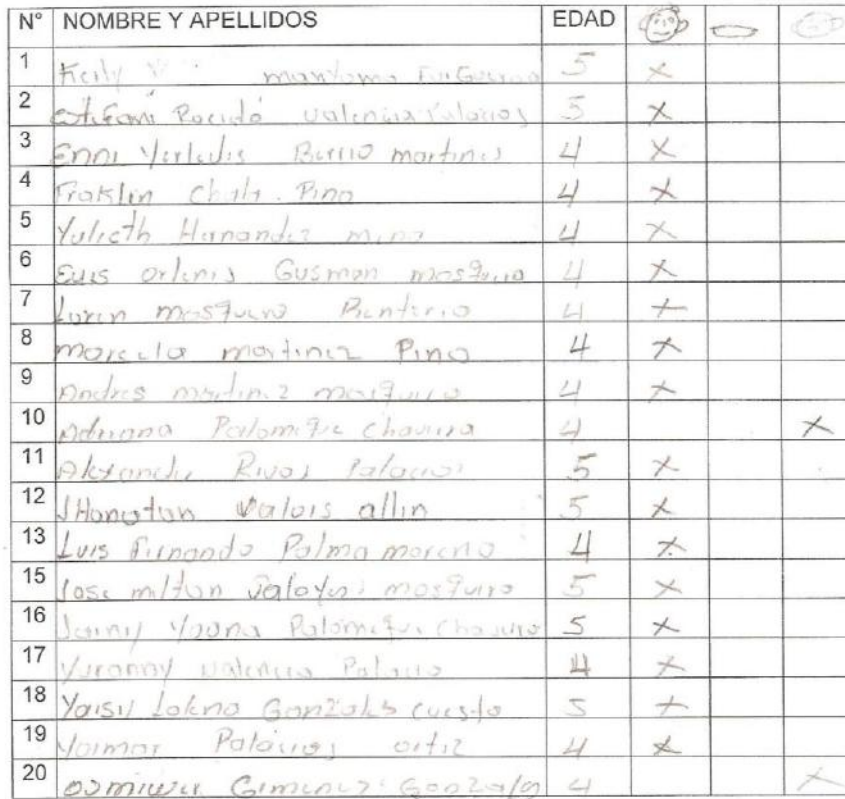 N° NOMBRE Y APELLIDOS EDAD
1 Keily 5 x
2 Estefani Rocido Valencia Palacios 5 x
3 Enni Yerledis Berrio martines 4 x
4 Fraklin Pino 4 x
5 Yulieth Hernandez mina 4 x
6 Euis orlenis Gusman mosquera 4 x
7 Loren mosquera Renteria 4 x
8 Marcela martinez Pino 4 x
9 Andres martinez mosquera 4 x
10 Adriana Palomeque chaverra 4 x
11 Alexander Rivas Palacios 5 x
12 JHonatan Valois allin 5 x
13 Luis fernando Palma moreno 4 x
15 Jose milton mosquera 5 x
16 Yoana Palomeque chaverra 5 x
17 Yuranny valencia Palacio 4 x
18 Gonzales cuesta 5 x
19 Yaimar Palacios ortiz 4 x
20 Gimenez Gonzales 4 x